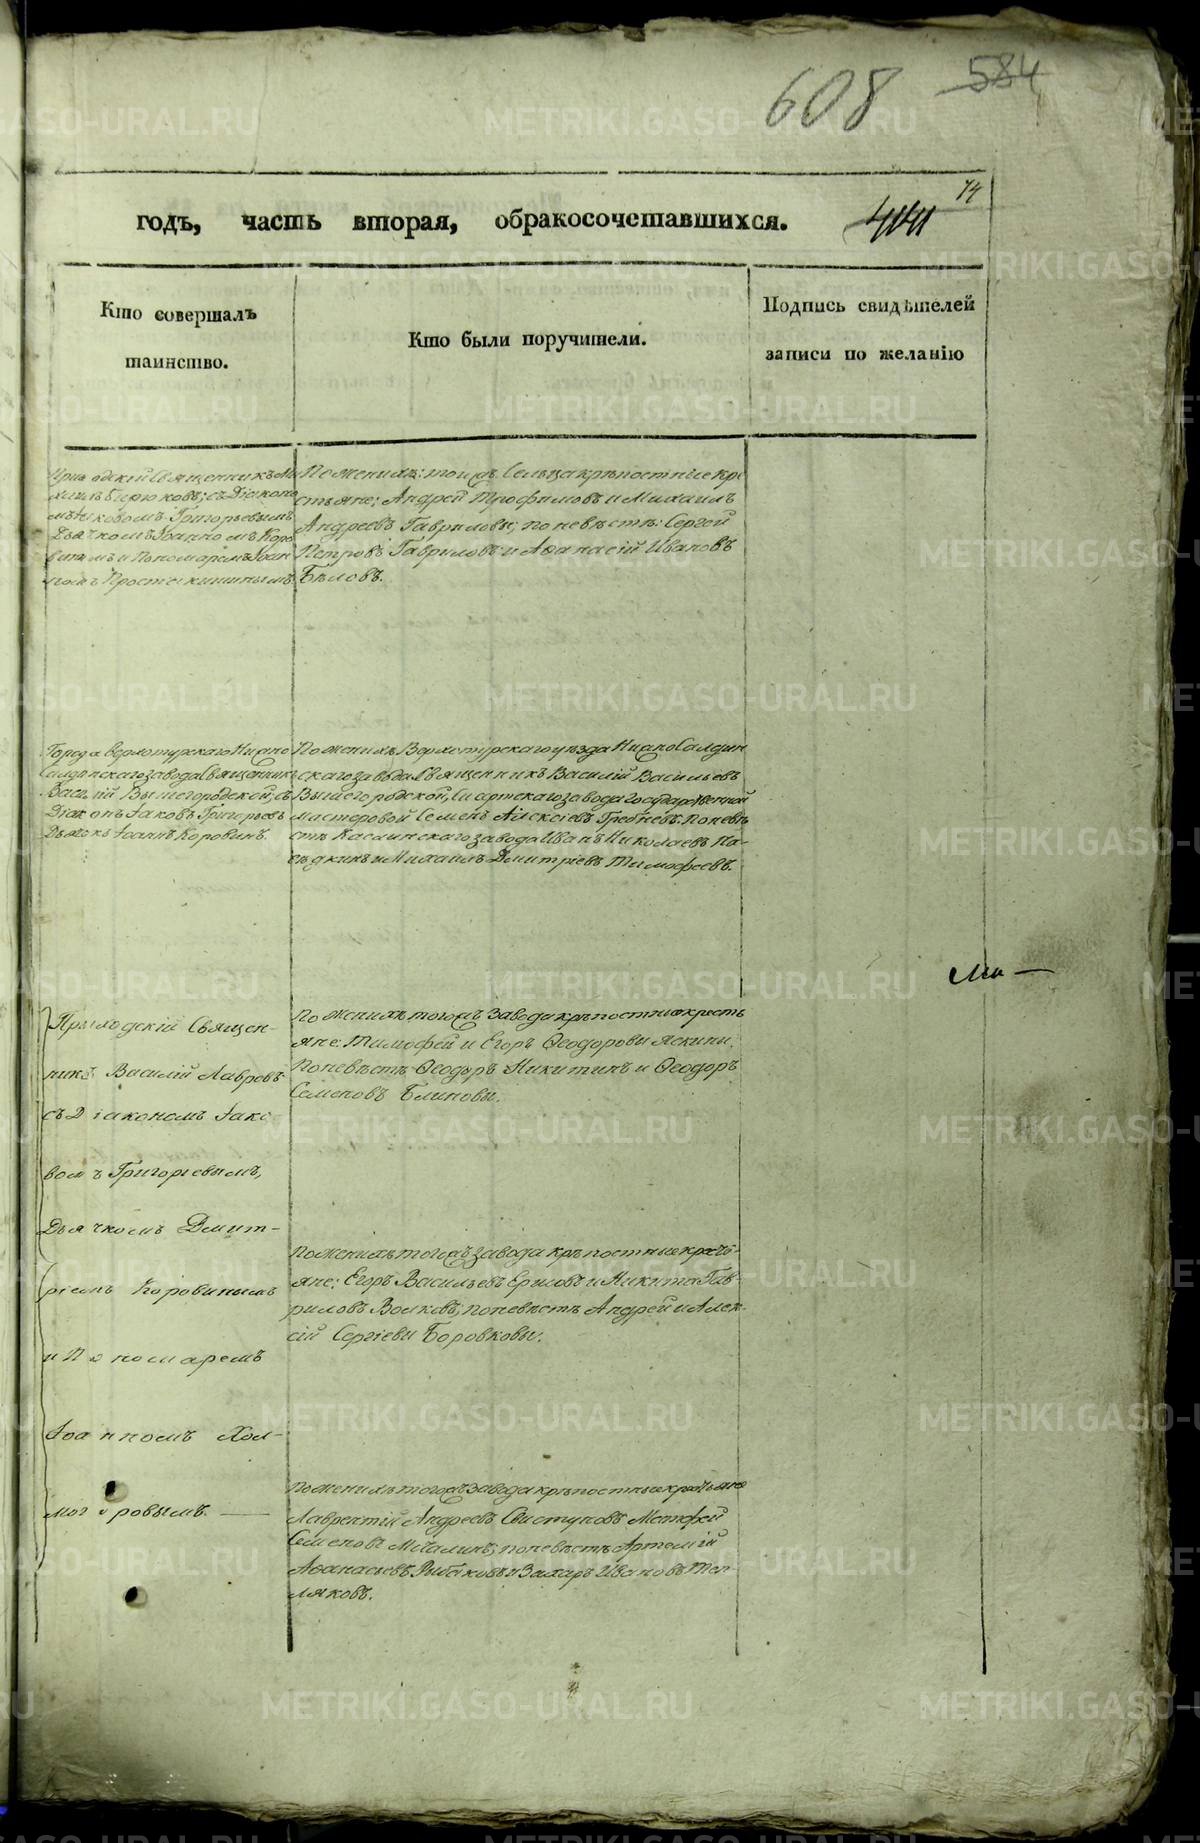 608 584
годъ, часть вторая, обракосочетавшихся. 441 74
Кто совершалъ
таинство.
Кто были поручители.
Подпись свидѣтелей
записи по желанію
Приходскій Священникъ Ми
хаилъ Бирюковъ; съ Діакономъ
Іяковомъ Григорьевымъ
Дьячкомъ Іоанномъ Коро
винымъ и Пономаремъ Іоан
номъ
По женихѣ: того жъ Сельца крѣпостные кре
стьяне; Андрей Трофимовъ и Михаилъ
Андреевъ Гавриловы; по невѣстѣ: Сергей
Петровъ Гавриловъ и Аѳанасій Ивановъ
Бѣловъ.
Города Верхотурскаго Нижно
Салдинскаго завода Священникъ
Василій Вышегородской; съ
Діаконъ Іаковъ Григорьевъ
Дьячокъ Іоаннъ Коровинъ.
По женихѣ Верхотурскаго уѣзда Нижно Салдин
скаго завода Священникъ Василій Васильевъ
Вышегородской, Сысертскаго завода Государственной
мастеровой Семенъ Алексіевъ Гребневъ. По невѣ
стѣ Каслинскаго завода Иванъ Николаевъ На-
сѣдкинъ и Михаилъ Дмитріевъ Тимофеевъ.
Приходскій Священ-
никъ Василій Лавровъ
съ Діакономъ Іако
вомъ Григоріевымъ,
Дьячкомъ Дмит-
ріемъ Коровинымъ
и Пономаремъ
Іоанномъ Хол-
могоровымъ.
По женихѣ того жъ завода крѣпостные кресть
яне: Тимофей и Егоръ Ѳеодоровы Яскины.
По невѣстѣ Ѳеодоръ Никитинъ и Ѳеодоръ
Семеновъ Блиновы.
По женихѣ того жъ завода крѣпостные кресть-
яне: Егоръ Васильевъ Ершовъ и Никита Гав-
риловъ Волковъ, по невѣстѣ Андрей и Алек-
сій Сергіевы Боровковы.
По женихѣ того жъ завода крѣпостные крестьяне
Лаврентій Андреевъ Свистуновъ Матфей
Семеновъ Мочалинъ; по невѣстѣ Артемій
Аѳанасьевъ Рыбаковъ и Захаръ Ивановъ Теп-
ляковъ.
METRIKI.GASO-URAL.RU